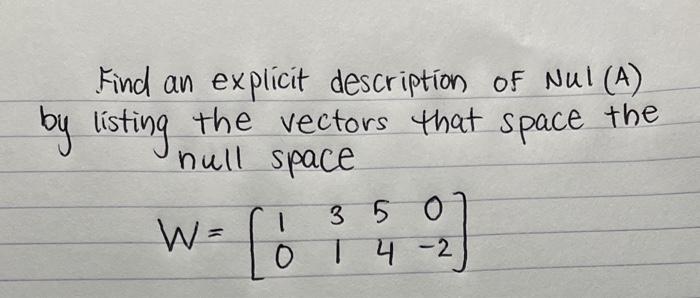 Find an explicit description of Nul (A)
by listing the vectors that space the
null space
W = [1 3 5 0
0 1 4 -2]